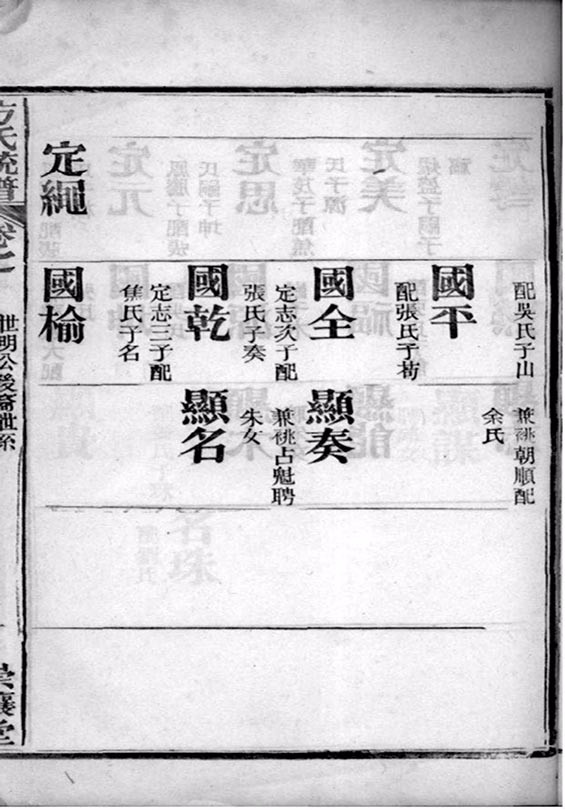 配吳氏子山
兼祧朝順配
余氏
國平
配張氏子
國全
定志次子配
張氏子奏
顯奏
兼祧占魁聘
朱女
國乾
定志三子配
焦氏子名
顯名
定繩
國榆
方氏統譜
世明公後裔世系